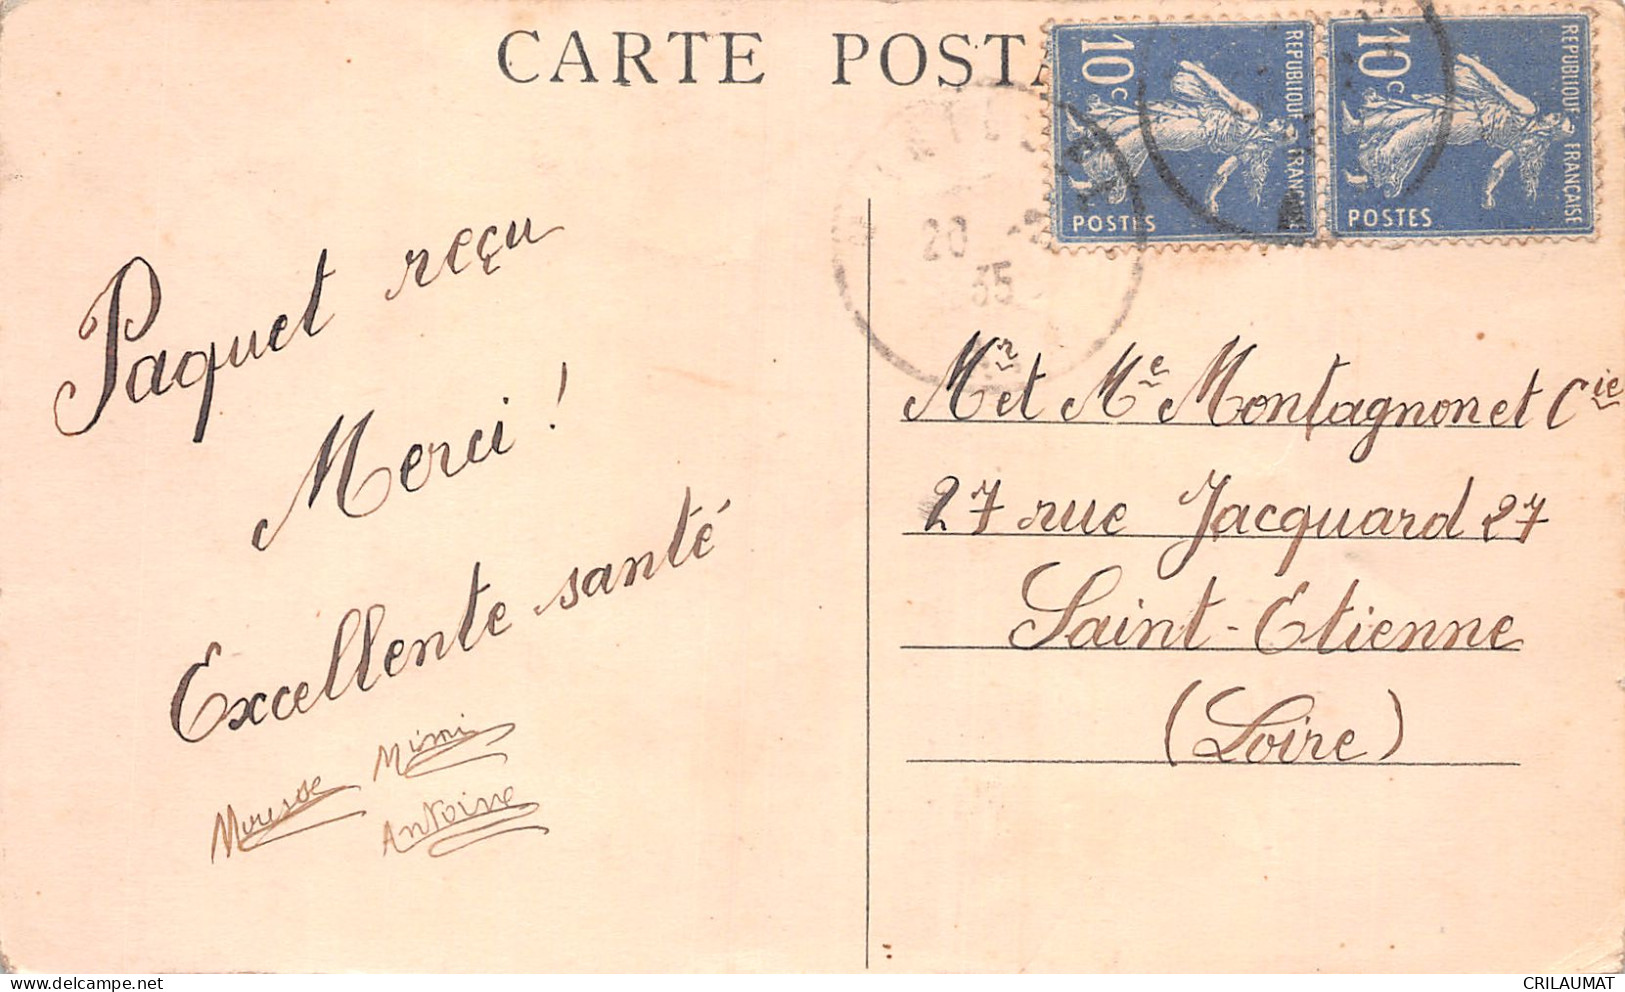 CARTE POSTA
10c
REPUBLIQUE FRANÇAISE
POSTES
10c
REPUBLIQUE FRANÇAISE
POSTES
20
35
Paquet reçu
Merci !
Excellente santé
Mimi
Mousse
Antoine
Mr et Me Montagnon et Cie
27 rue Jacquard 27
Saint-Etienne
(Loire)
CRILAUMAT